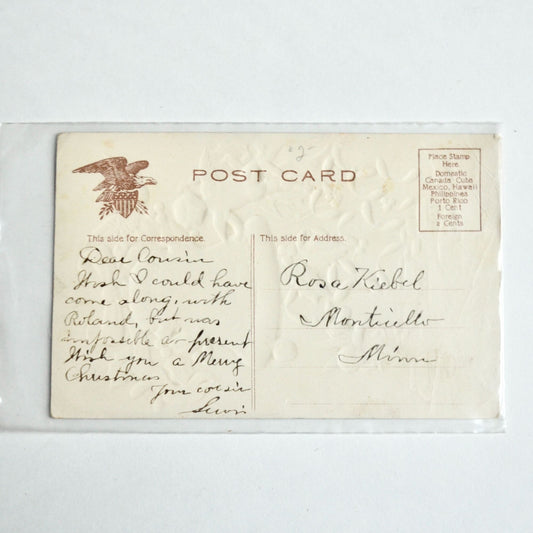 2-
POST CARD
Place Stamp
Here
Domestic
Canada Cuba
Mexico, Hawaii
Philippines
Porto Rico
1 Cent
Foreign
2 Cents
This side for Correspondence.
Dear Cousin
Wish I could have
come along, with
Roland, but was
impossible at present
Wish you a Merry
Christmas
Your cousin
This side for Address.
Rosa Kiebel
Monticello
Minn